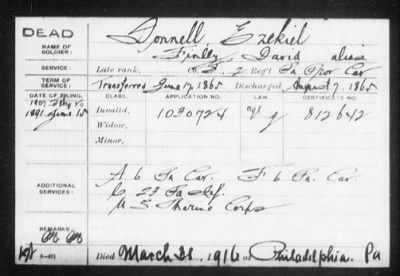 DEAD
Donnell, Ezekiel
NAME OF SOLDIER:
Finley David alias
SERVICE:
Late rank, Reg't Pa Prov Cav
TERM OF SERVICE:
Transferred June 17, 1865 Discharged August 7, 1865
DATE OF FILING. CLASS. APPLICATION NO. LAW. CERTIFICATE NO.
Invalid, 1030724 812642
Widow,
Minor,
ADDITIONAL SERVICES:
A 6 Pa Cav. F 6 Pa. Cav.
C 23 Pa Inf.
U S Marine Corps
REMARKS:
Died March 31, 1916 at Philadelphia. Pa